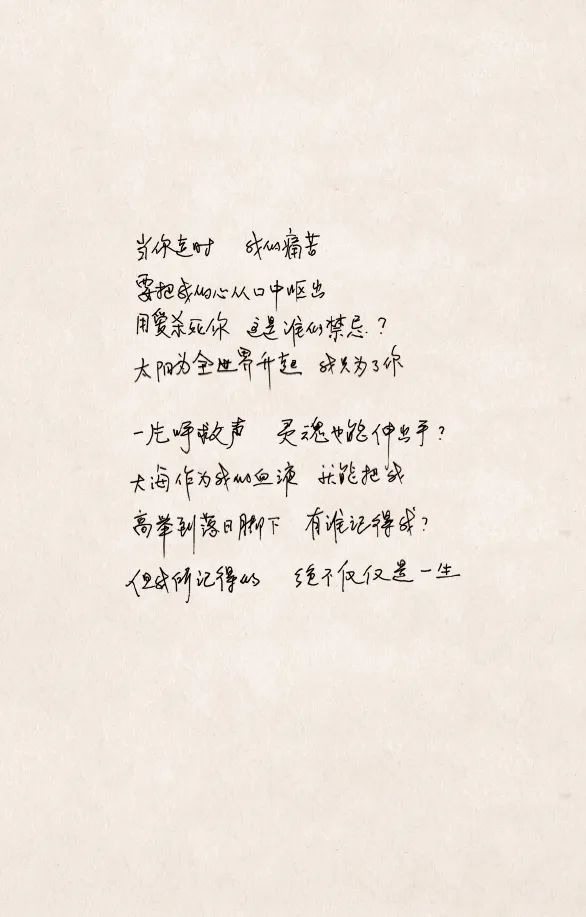 当你走时 我的痛苦
要把我的心从口中呕出
用爱杀死你 这是谁的禁忌？
太阳为全世界升起 我只为了你
一片呼救声 灵魂也能伸出手？
大海作为我的血液 就能把我
高举到落日脚下 有谁记得我？
但我所记得的 绝不仅仅是一生